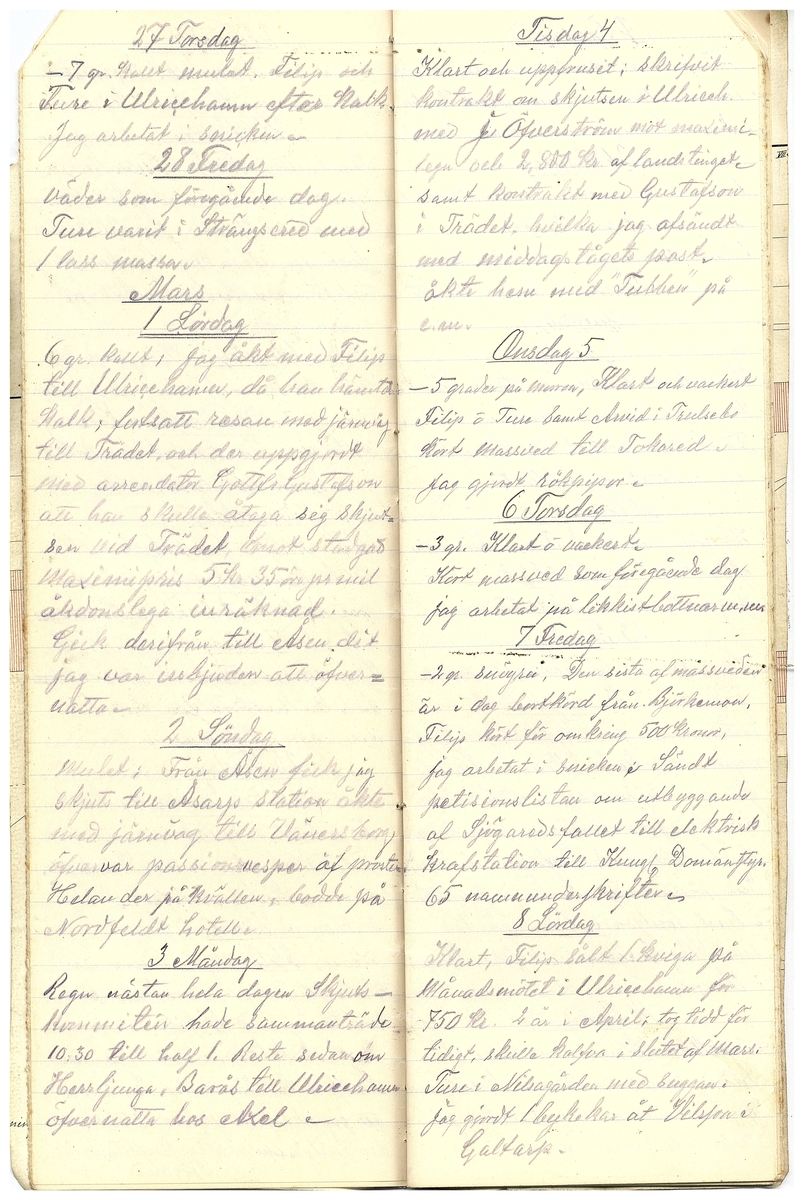 27 Torsdag
-7 gr. Kallt mulet. Filip och
Ture i Ulricehamn efter Kalk.
Jag arbetat i snicken
28 Fredag
väder som föregående dag.
Ture varit i Strängsered med
1 lass massa.
Mars
1 Lördag
6 gr. kallt, jag åkt med Filip
till Ulricehamn, då han hämtade
Kalk; fortsatt resan med järnväg
till Trädet, och der uppgjordt
med arrendator Gottfr. Gustafson
att han skulle åtaga sig skjut=
sen vid Trädet, emot stadgad
Maximipris 5 kr 35 öre pr mil
åkdonslega inräknad.
Gick derifrån till Åsen dit
jag var inbjuden att öfver=
natta
2 Söndag
Mulet; Från Åsen fick jag
skjuts till Åsarps station åkte
med järnväg till Vänersborg,
öfvervar passionsvesper af prosten
Helander på kvällen, bodde på
Nordfeldt hotell.
3 Måndag
Regn nästan hela dagen Skjuts-
kommitén hade sammanträde
10.30 till half 1. Reste sedan om
Herrljunga, Borås till Ulricehamn
öfvernatta hos Axel
Tisdag 4
Klart och uppfruset; skrifvit
kontrakt om skjutsen i Ulriceh.
med J. Öfverström mot maximi-
lega och 2,800 kr af landstinget
samt kontrakt med Gustafson
i Trädet. hvilka jag afsändt
med middagstågets post.
åkte hem med "Tubben" på
e.m.
Onsdag 5
-5 grader på moron, Klart och vackert
Filip o Ture samt Arvid i Trulsebo
Kört Massved till Tokared.
Jag gjordt rökpipor.
6 Torsdag
-3 gr. Klart o vackert
Kört massved som föregående dag
jag arbetat på likkistbottnar m.m
7 Fredag
-2 gr. snöyra, Den sista af massveden
är i dag bortkörd från Björkemon,
Filip kört för omkring 500 kronor,
jag arbetat i snicken; Sändt
petisionslistan om utbyggande
af Sjögaredsfallet till elektrisk
krafstation till Kungl. Domänstyr.
65 namnunderskrifter
8 Lördag
Klart, Filip sålt 1 kviga på
Månadsmötet i Ulricehamn för
750 Kr. 2 år i April; tog tidd för
tidigt, skulle kalfva i slutet af Mars.
Ture i Nilsagården med suggan.
Jag gjordt 1 bykekar åt i
Galtarp.